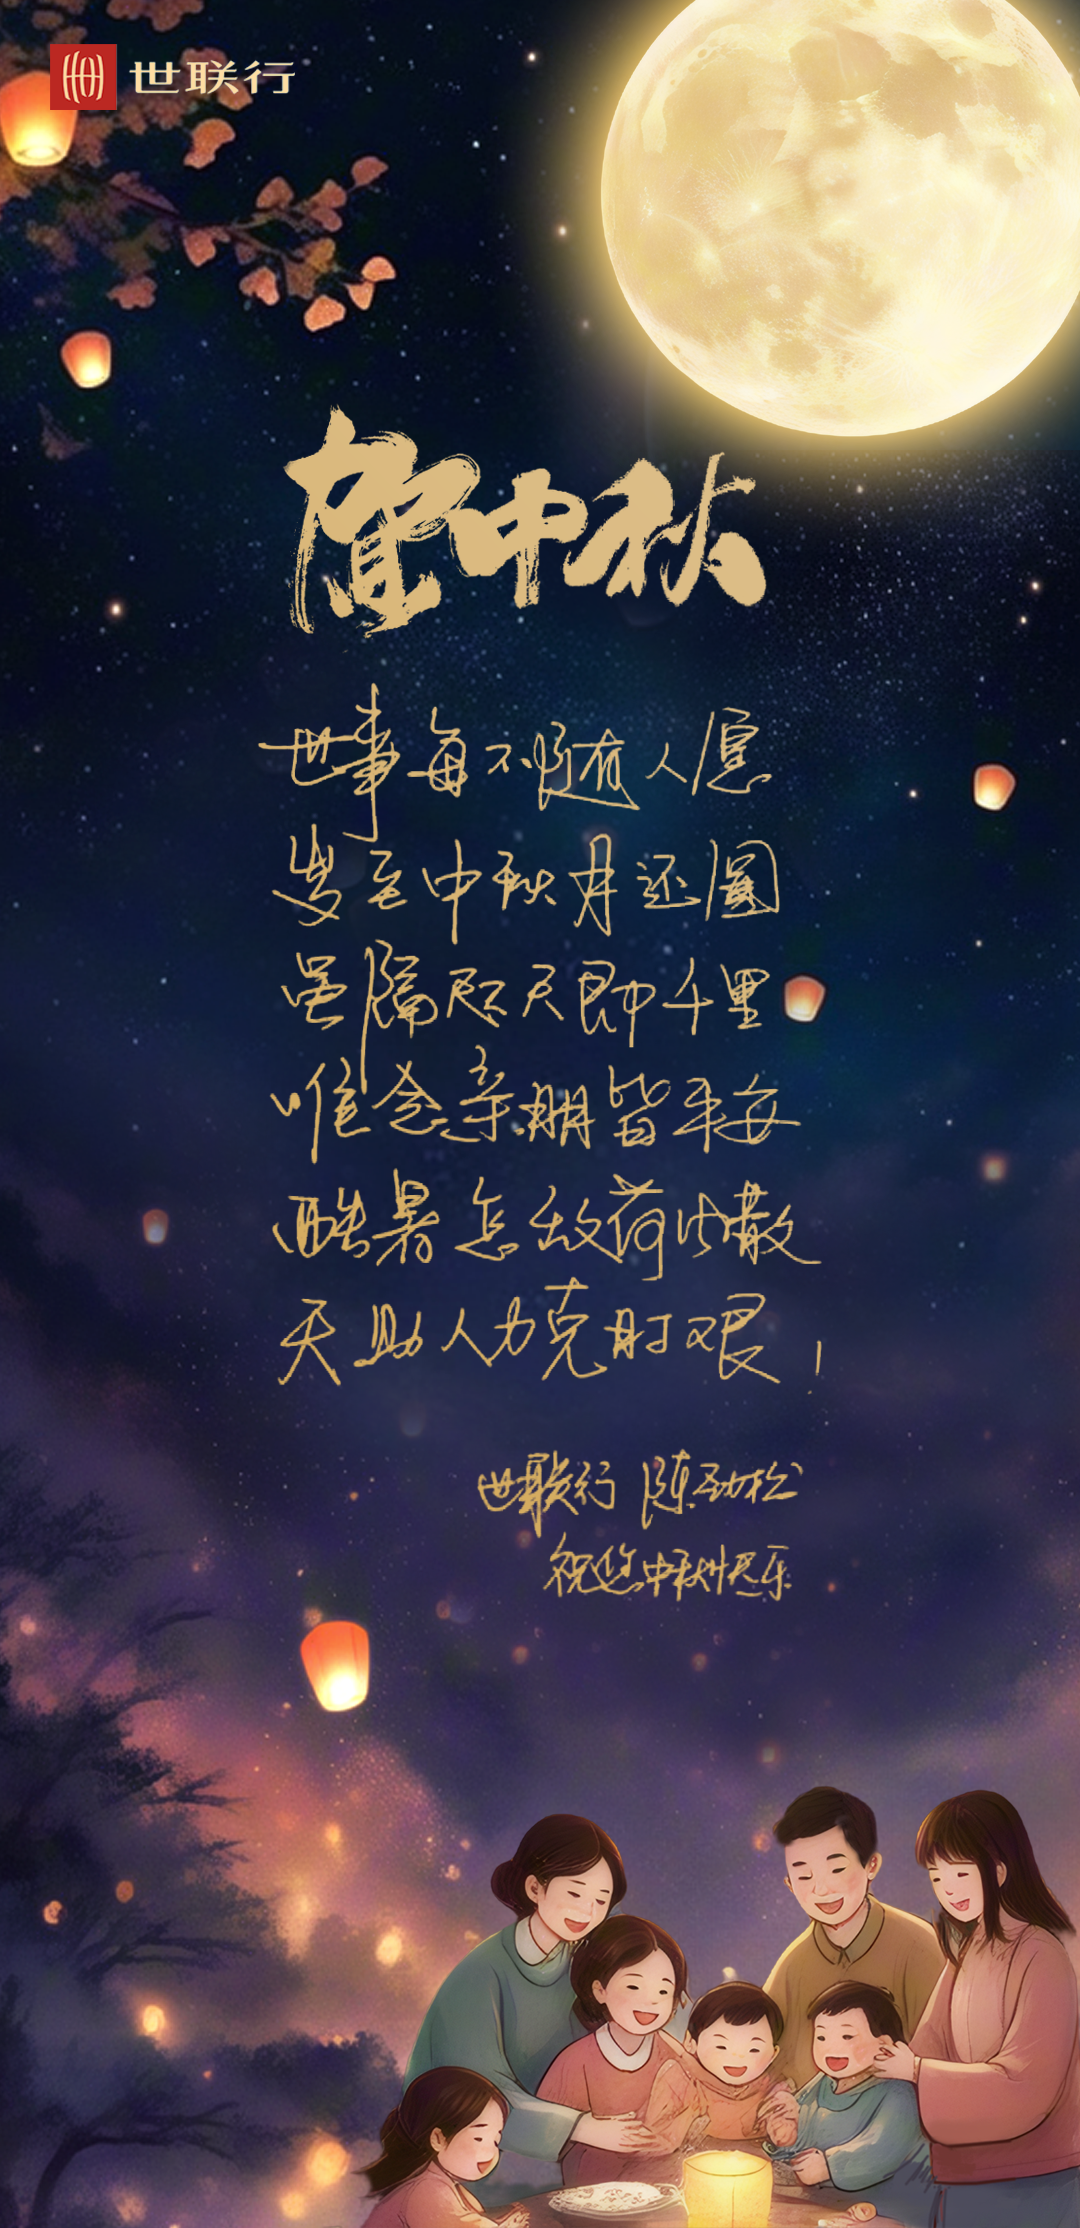 世联行
贺中秋
世事每不随有人愿
岁至中秋月还圆
虽隔咫天即千里
唯念亲朋皆平安
酷暑怎敌荷汐散
天助人力克时艰！
世联行 陈劲松
祝您中秋快乐